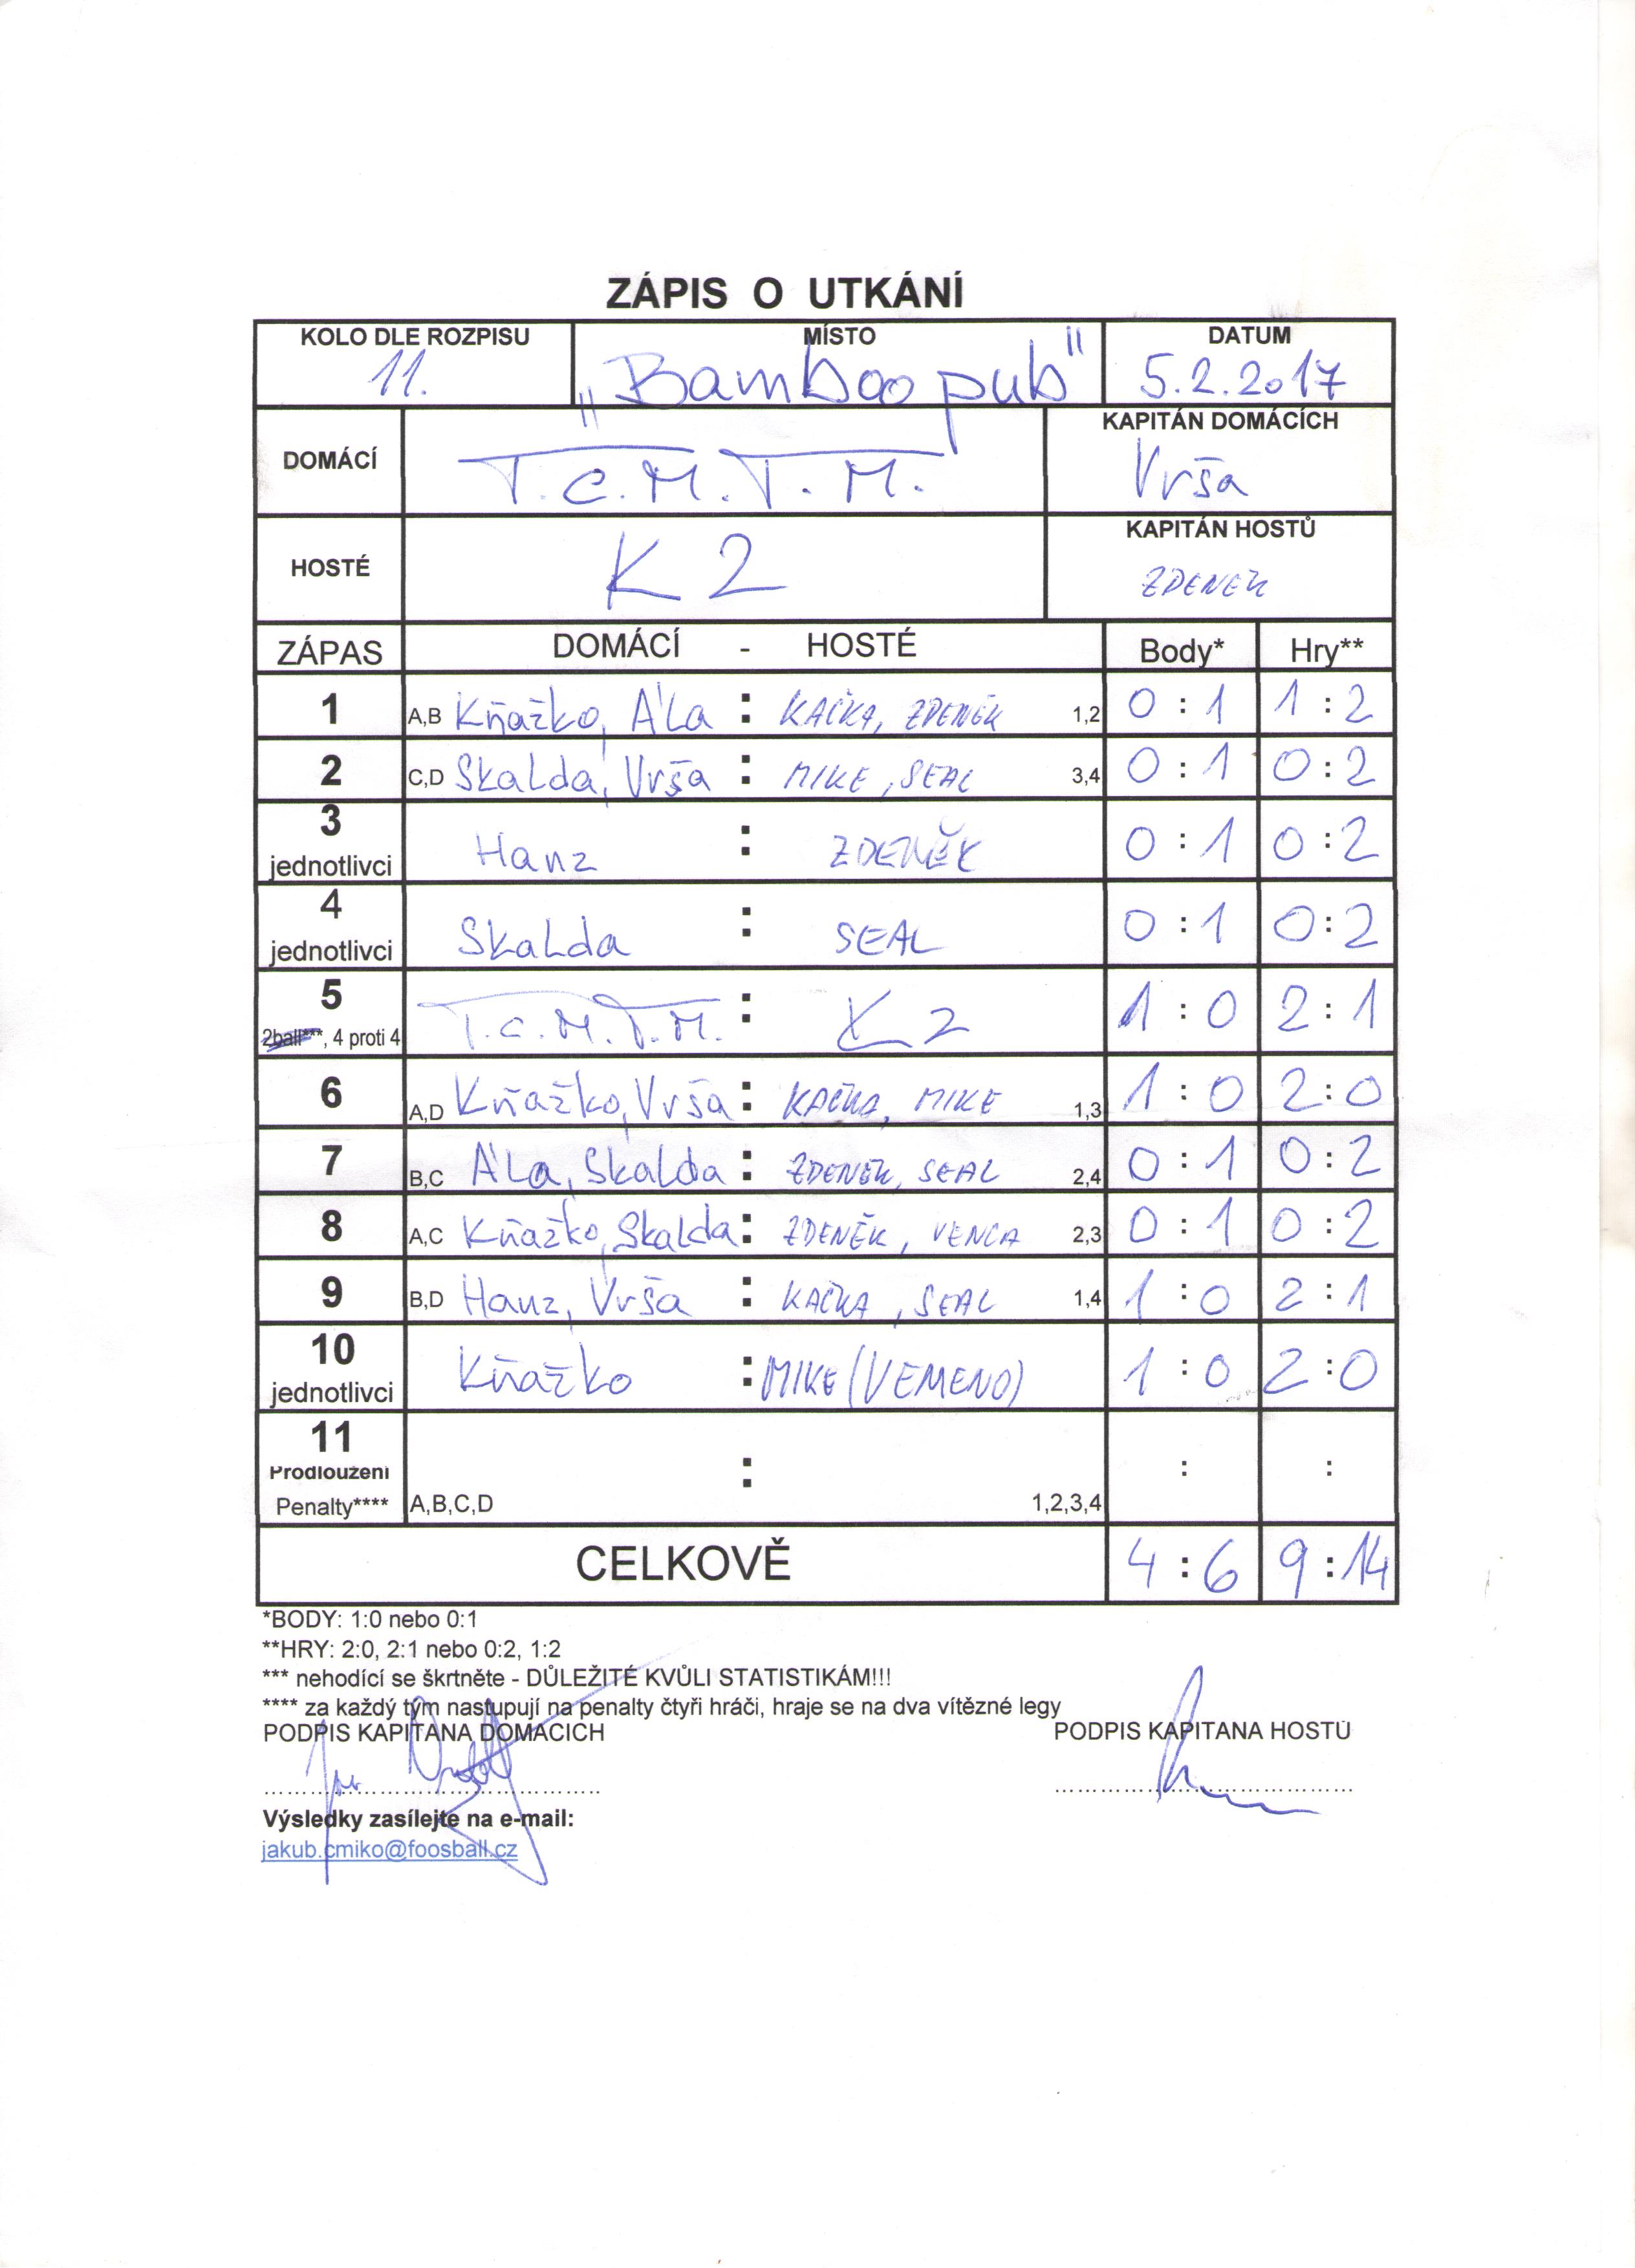 ZÁPIS O UTKÁNÍ
KOLO DLE ROZPISU MÍSTO DATUM
11. „Bamboo pub" 5.2.2017
DOMÁCÍ T.C.M.T.M. KAPITÁN DOMÁCÍCH
Vrša
HOSTÉ K2 KAPITÁN HOSTŮ
ZDENEK
ZÁPAS DOMÁCÍ - HOSTÉ Body* Hry**
1 A,B Kňažko, ÁLa : KAČKA, ZDENĚK 1,2 0 : 1 1 : 2
2 C,D Skalda, Vrša : MIKE, SEAL 3,4 0 : 1 0 : 2
3 jednotlivci Hanz : ZDENĚK 0 : 1 0 : 2
4 jednotlivci Skalda : SEAL 0 : 1 0 : 2
5 2ball***, 4 proti 4 T.C.M.T.M. : K2 1 : 0 2 : 1
6 A,D Kňažko, Vrša : KAČKA, MIKE 1,3 1 : 0 2 : 0
7 B,C ÁLa, Skalda : ZDENĚK, SEAL 2,4 0 : 1 0 : 2
8 A,C Kňažko, Skalda : ZDENĚK, VENCA 2,3 0 : 1 0 : 2
9 B,D Hanz, Vrša : KAČKA, SEAL 1,4 1 : 0 2 : 1
10 jednotlivci Kňažko : MIKE (VEMENO) 1 : 0 2 : 0
11 Prodloužení : : :
Penalty**** A,B,C,D 1,2,3,4
CELKOVĚ 4 : 6 9 : 14
*BODY: 1:0 nebo 0:1
**HRY: 2:0, 2:1 nebo 0:2, 1:2
*** nehodící se škrtněte - DŮLEŽITÉ KVŮLI STATISTIKÁM!!!
**** za každý tým nastupují na penalty čtyři hráči, hraje se na dva vítězné legy
PODPIS KAPITÁNA DOMÁCÍCH PODPIS KAPITÁNA HOSTŮ
Výsledky zasílejte na e-mail:
jakub.cmiko@foosball.cz